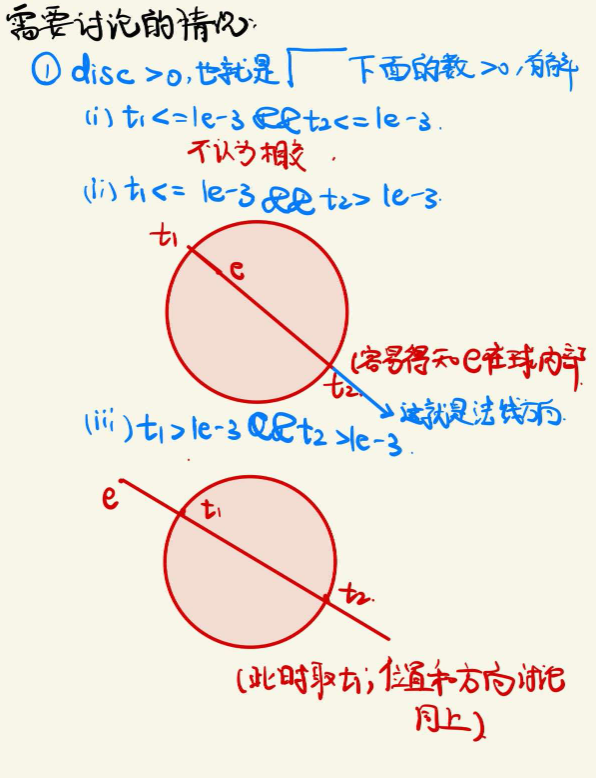 需要讨论的情况:
① disc >0,也就是√ 下面的数>0,有解
(i) t₁<=1e-3 && t₂<=1e-3.
不认为相交.
(ii) t₁<= 1e-3 && t₂> 1e-3.
t₁
e
(容易得知e在球内部
t₂
这就是法线方向.
(iii) t₁>1e-3 && t₂>1e-3.
e
t₁
t₂.
(此时取t₁,位置和方向讨论
同上)